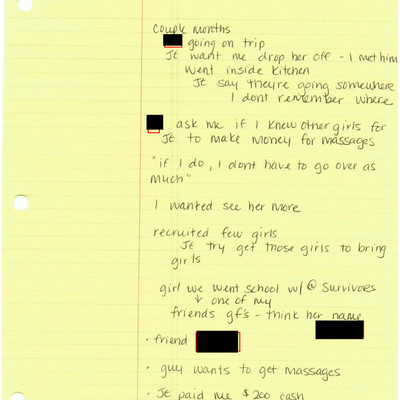 couple months
going on trip
Je want me drop her off - I met him
went inside kitchen
Je say they're going somewhere
I dont remember where
ask me if I knew other girls for
Je to make money for massages
"if I do, I dont have to go over as
much"
I wanted see her more
recruited few girls
Je try get those girls to bring
girls
girl we went school w/@ Survivors
↓ one of my
friends gf's - think her name
· friend
· guy wants to get massages
· Je paid me $200 cash